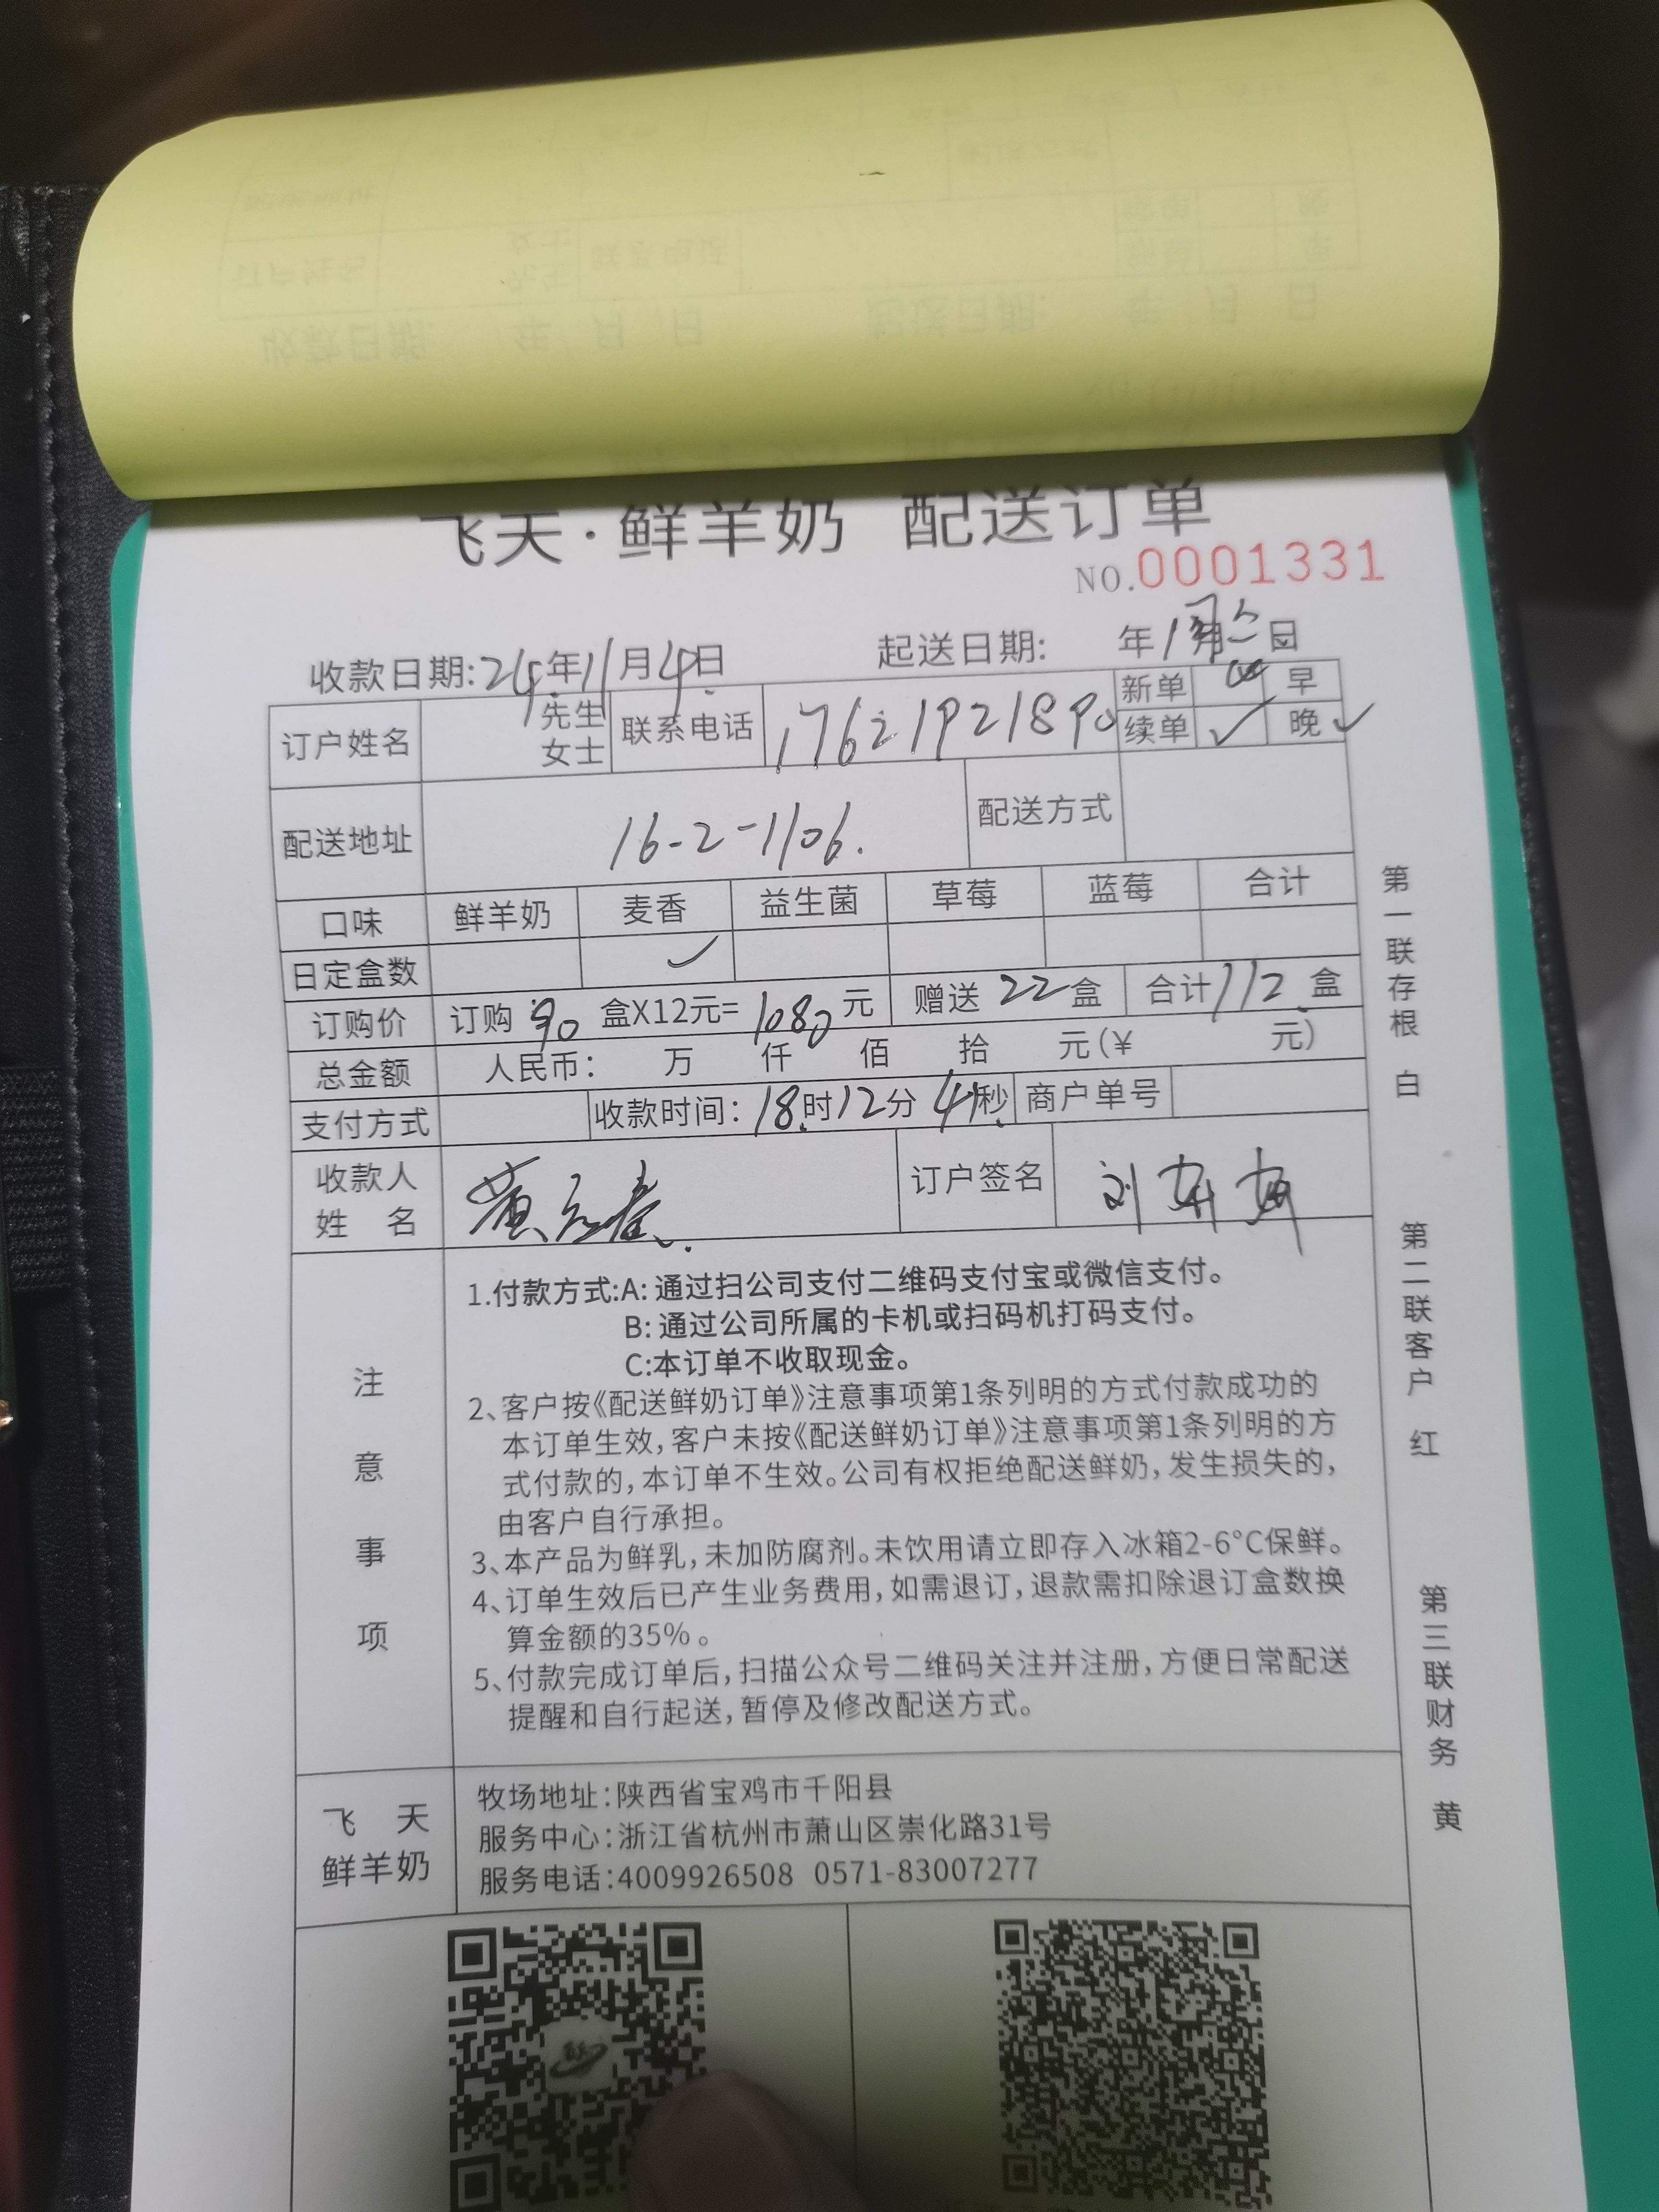 飞天·鲜羊奶 配送订单
NO.0001331
收款日期:24年11月4日 起送日期: 年1月 日
订户姓名 先生 女士 联系电话 17621921890 新单 早
续单 ✓ 晚 ✓
配送地址 16-2-1106. 配送方式
口味 鲜羊奶 麦香 益生菌 草莓 蓝莓 合计
日定盒数 ✓
订购价 订购 90 盒X12元= 1080 元 赠送 22 盒 合计 112 盒
总金额 人民币: 万 仟 佰 拾 元(¥ 元)
支付方式 收款时间: 18时12分41秒 商户单号
收款人姓名 黄 春 订户签名 刘
注意事项
1.付款方式:A: 通过扫公司支付二维码支付宝或微信支付。
B: 通过公司所属的卡机或扫码机打码支付。
C:本订单不收取现金。
2、客户按《配送鲜奶订单》注意事项第1条列明的方式付款成功的
本订单生效,客户未按《配送鲜奶订单》注意事项第1条列明的方
式付款的,本订单不生效。公司有权拒绝配送鲜奶,发生损失的,
由客户自行承担。
3、本产品为鲜乳,未加防腐剂。未饮用请立即存入冰箱2-6°C保鲜。
4、订单生效后已产生业务费用,如需退订,退款需扣除退订盒数换
算金额的35%。
5、付款完成订单后,扫描公众号二维码关注并注册,方便日常配送
提醒和自行起送,暂停及修改配送方式。
飞天
鲜羊奶
牧场地址:陕西省宝鸡市千阳县
服务中心:浙江省杭州市萧山区崇化路31号
服务电话:4009926508 0571-83007277
第一联存根 白
第二联客户 红
第三联财务 黄